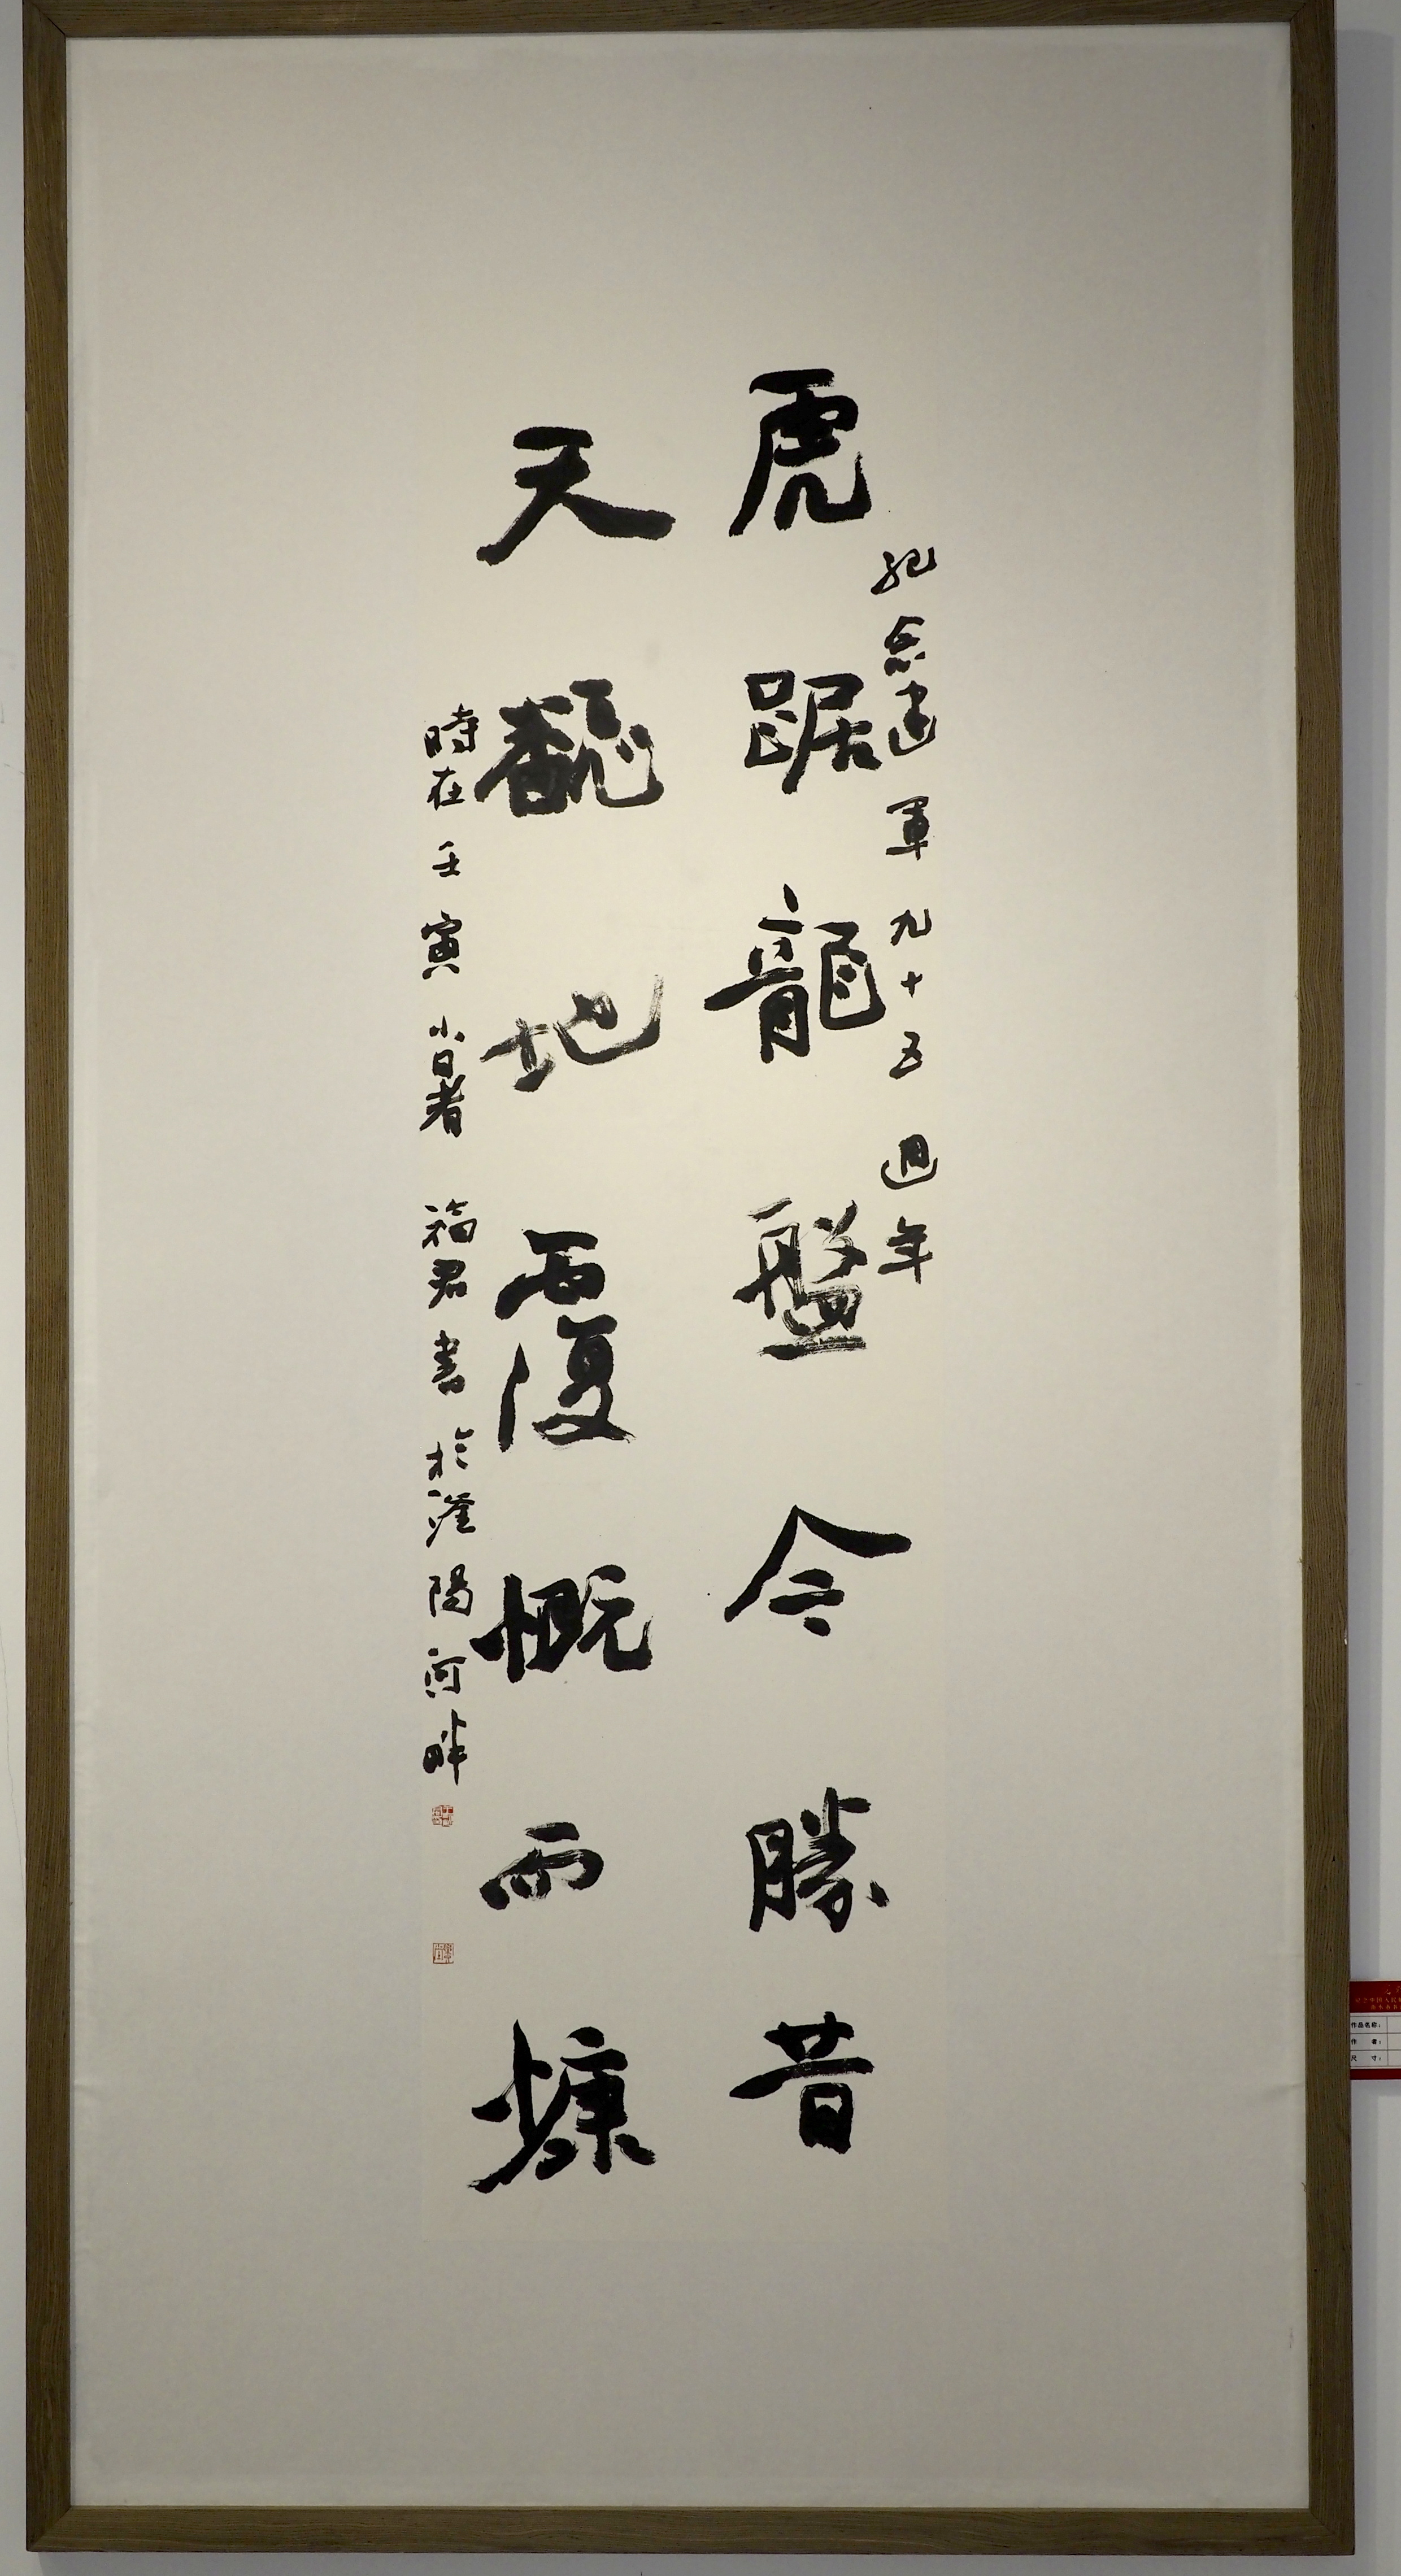 紀念建軍九十五週年
虎踞龍盤今勝昔
天飜地覆慨而慷
時在壬寅小暑福君書於滏陽河畔
作品名称：
作者：
尺寸：